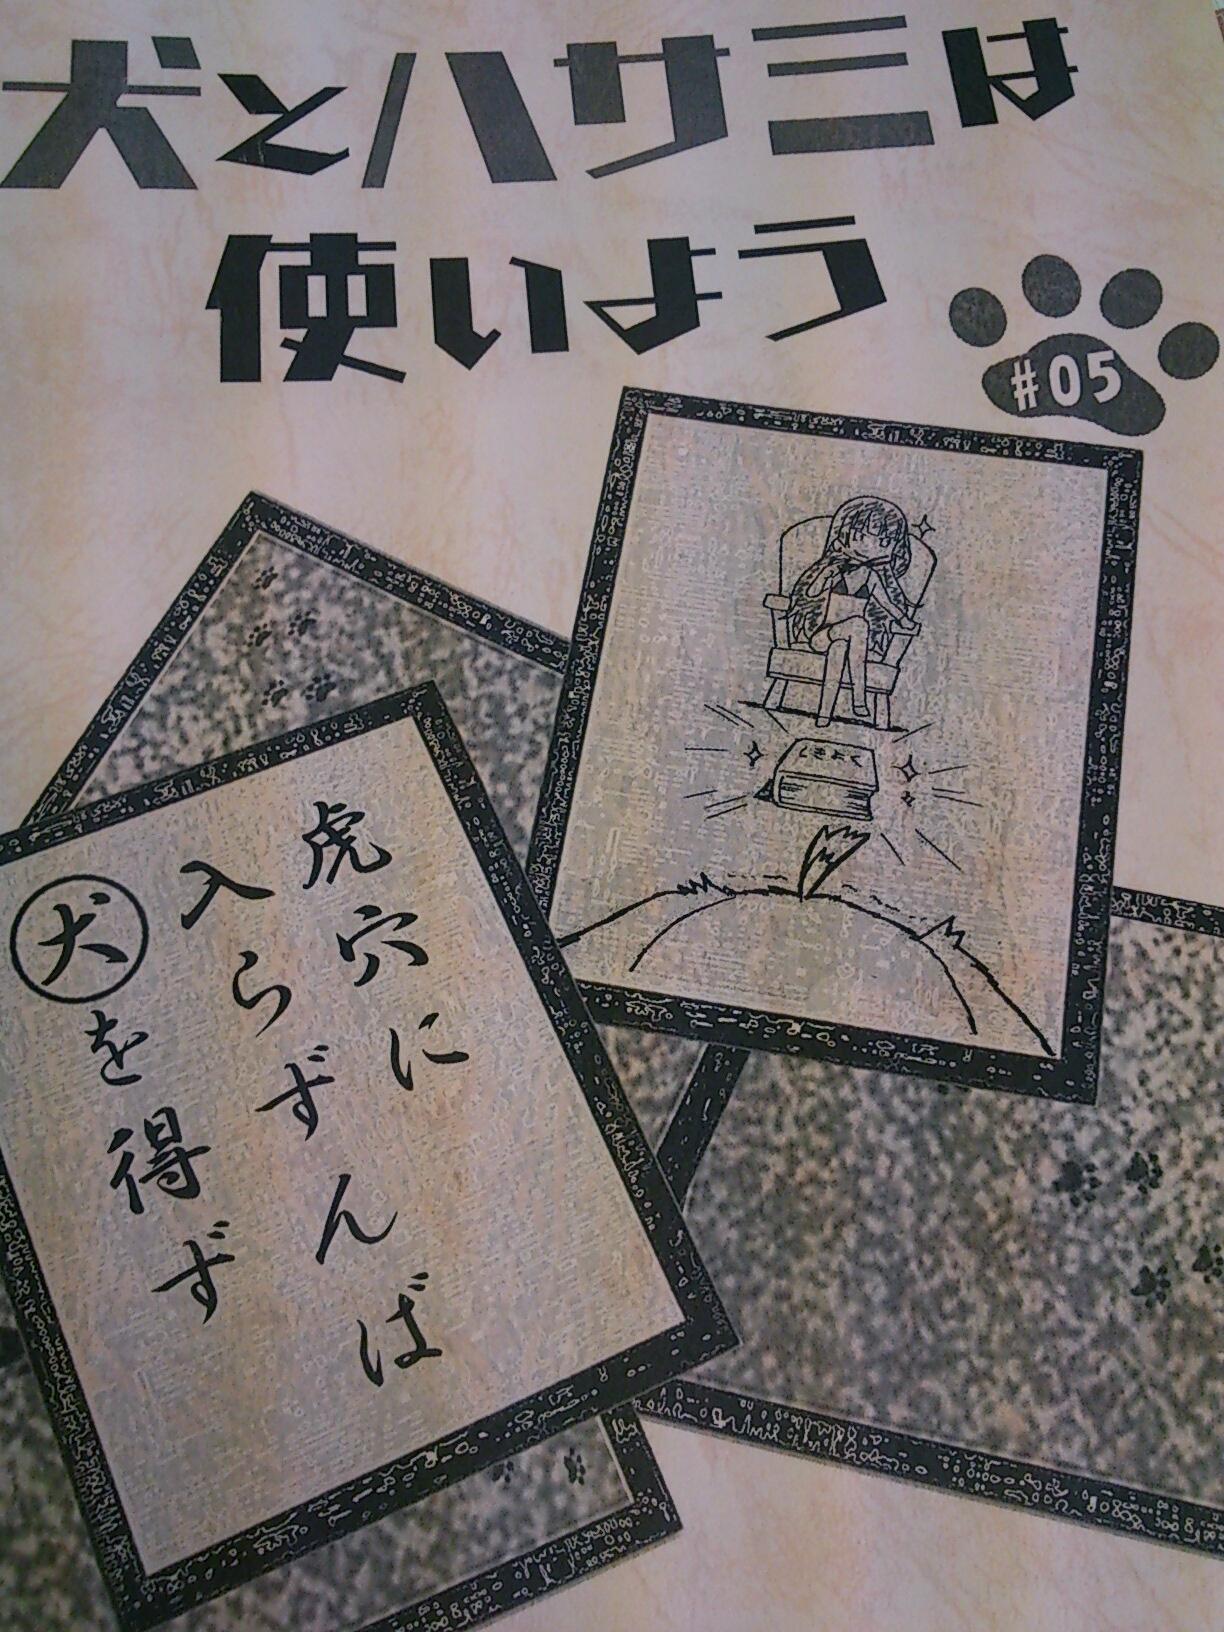 犬とハサミは
使いよう
#05
虎穴に
入らずんば
犬を得ず